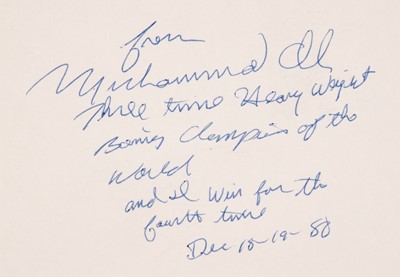 from
Muhammad Ali
three time Heavy Weight
Boxing Champion of the
World
and I Win for the
fourth time
Dec 18-19-80